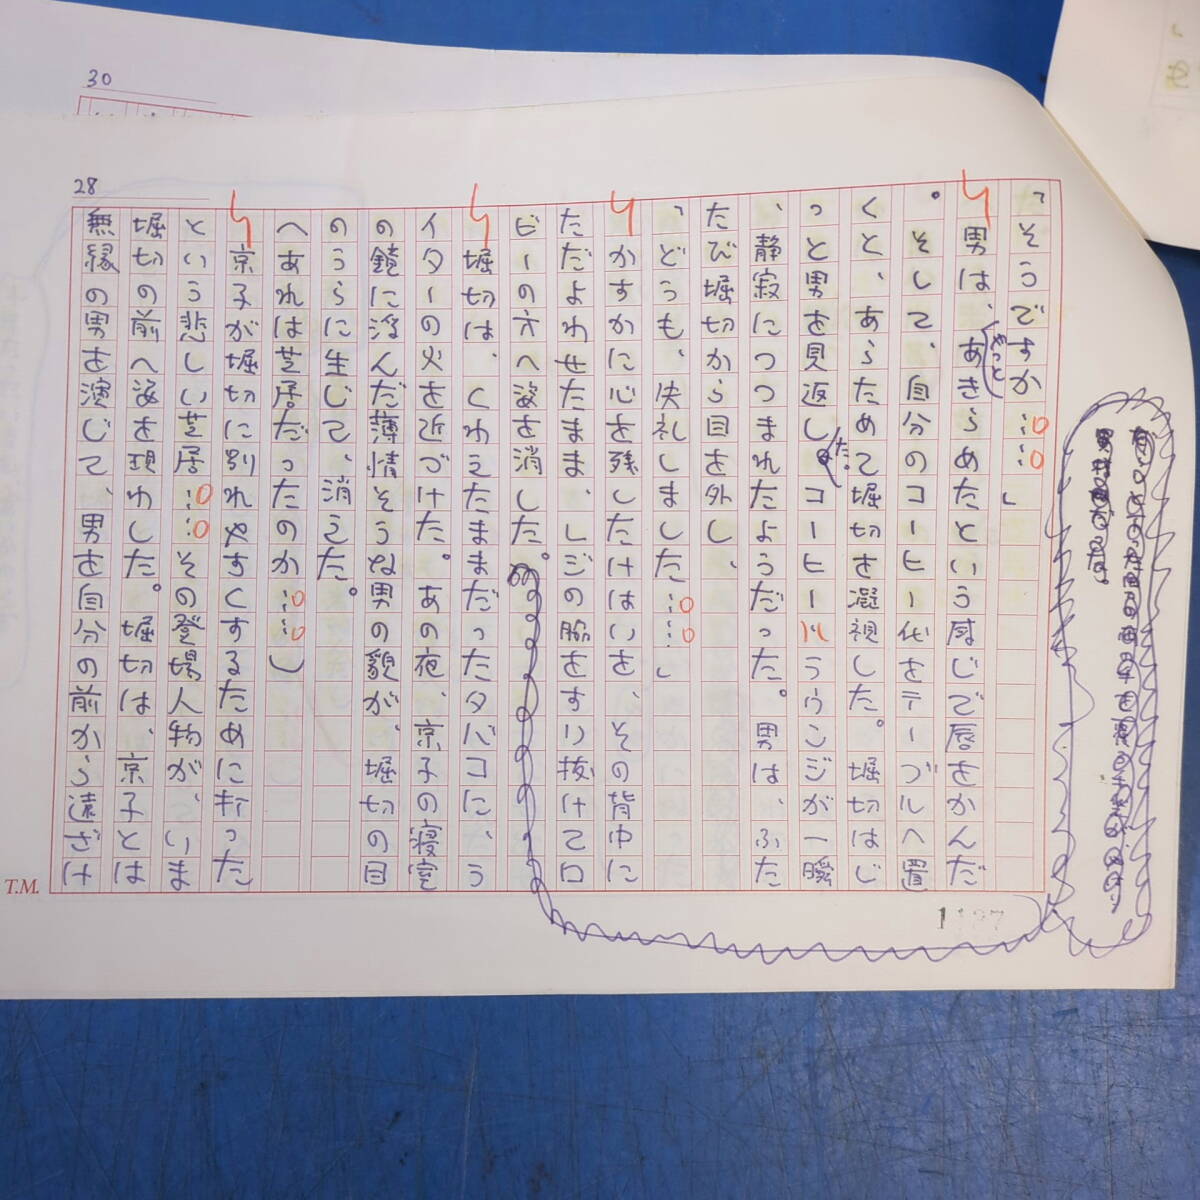 30
28
「そうですか……」
男は、やっとあきらめたという感じで唇をかんだ
。そして、自分のコーヒー代をテーブルへ置
くと、あらためて堀切を凝視した。堀切はじ
っと男を見返した。コーヒールウンジが一瞬
、静寂につつまれたようだった。男は、ふた
たび堀切から目を外し、
「どうも、失礼しました……」
かすかに心を残したけはいを、その背中に
ただよわせたまま、レジの脇をすり抜けてロ
ビーの方へ姿を消した。
堀切は、くわえたままだったタバコに、ラ
イターの火を近づけた。あの夜、京子の寝室
の鏡に浮んだ薄情そうな男の貌が、堀切の目
のうらに生じて、消えた。
へあれは芝居だったのか……し
京子が堀切に別れやすくするために打った
という悲しい芝居……その登場人物が、いま
堀切の前へ姿を現わした。堀切は、京子とは
無縁の男を演じて、男を自分の前から遠ざけ
T.M.